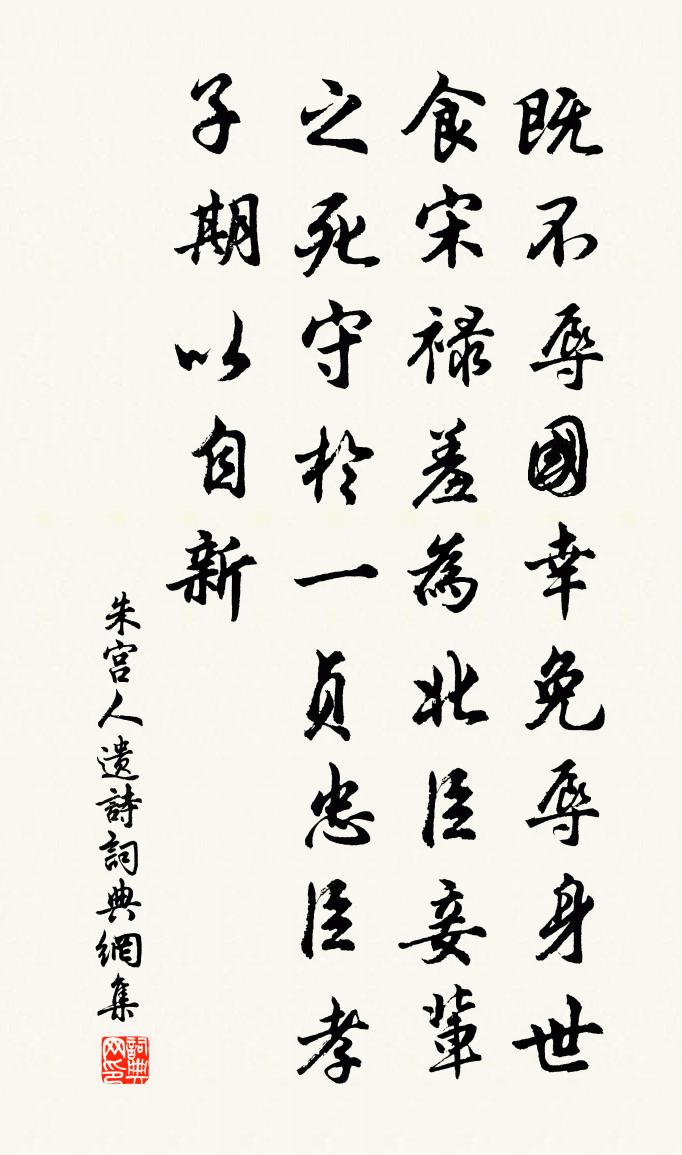 既不辱國幸免辱身世
食宋禄羞為北臣妾輩
之死守於一貞忠臣孝
子期以自新
朱宫人遺詩詞典網集
詞典网印